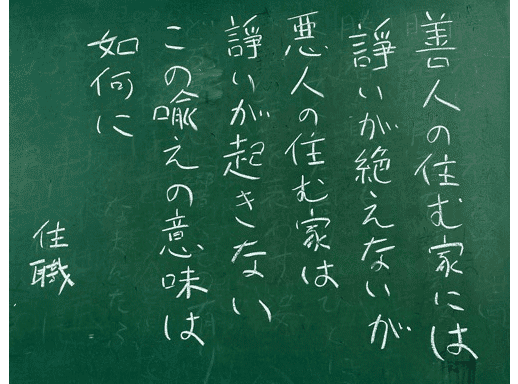 善人の住む家には
諍いが絶えないが
悪人の住む家は
諍いが起きない
この喩えの意味は
如何に
住職